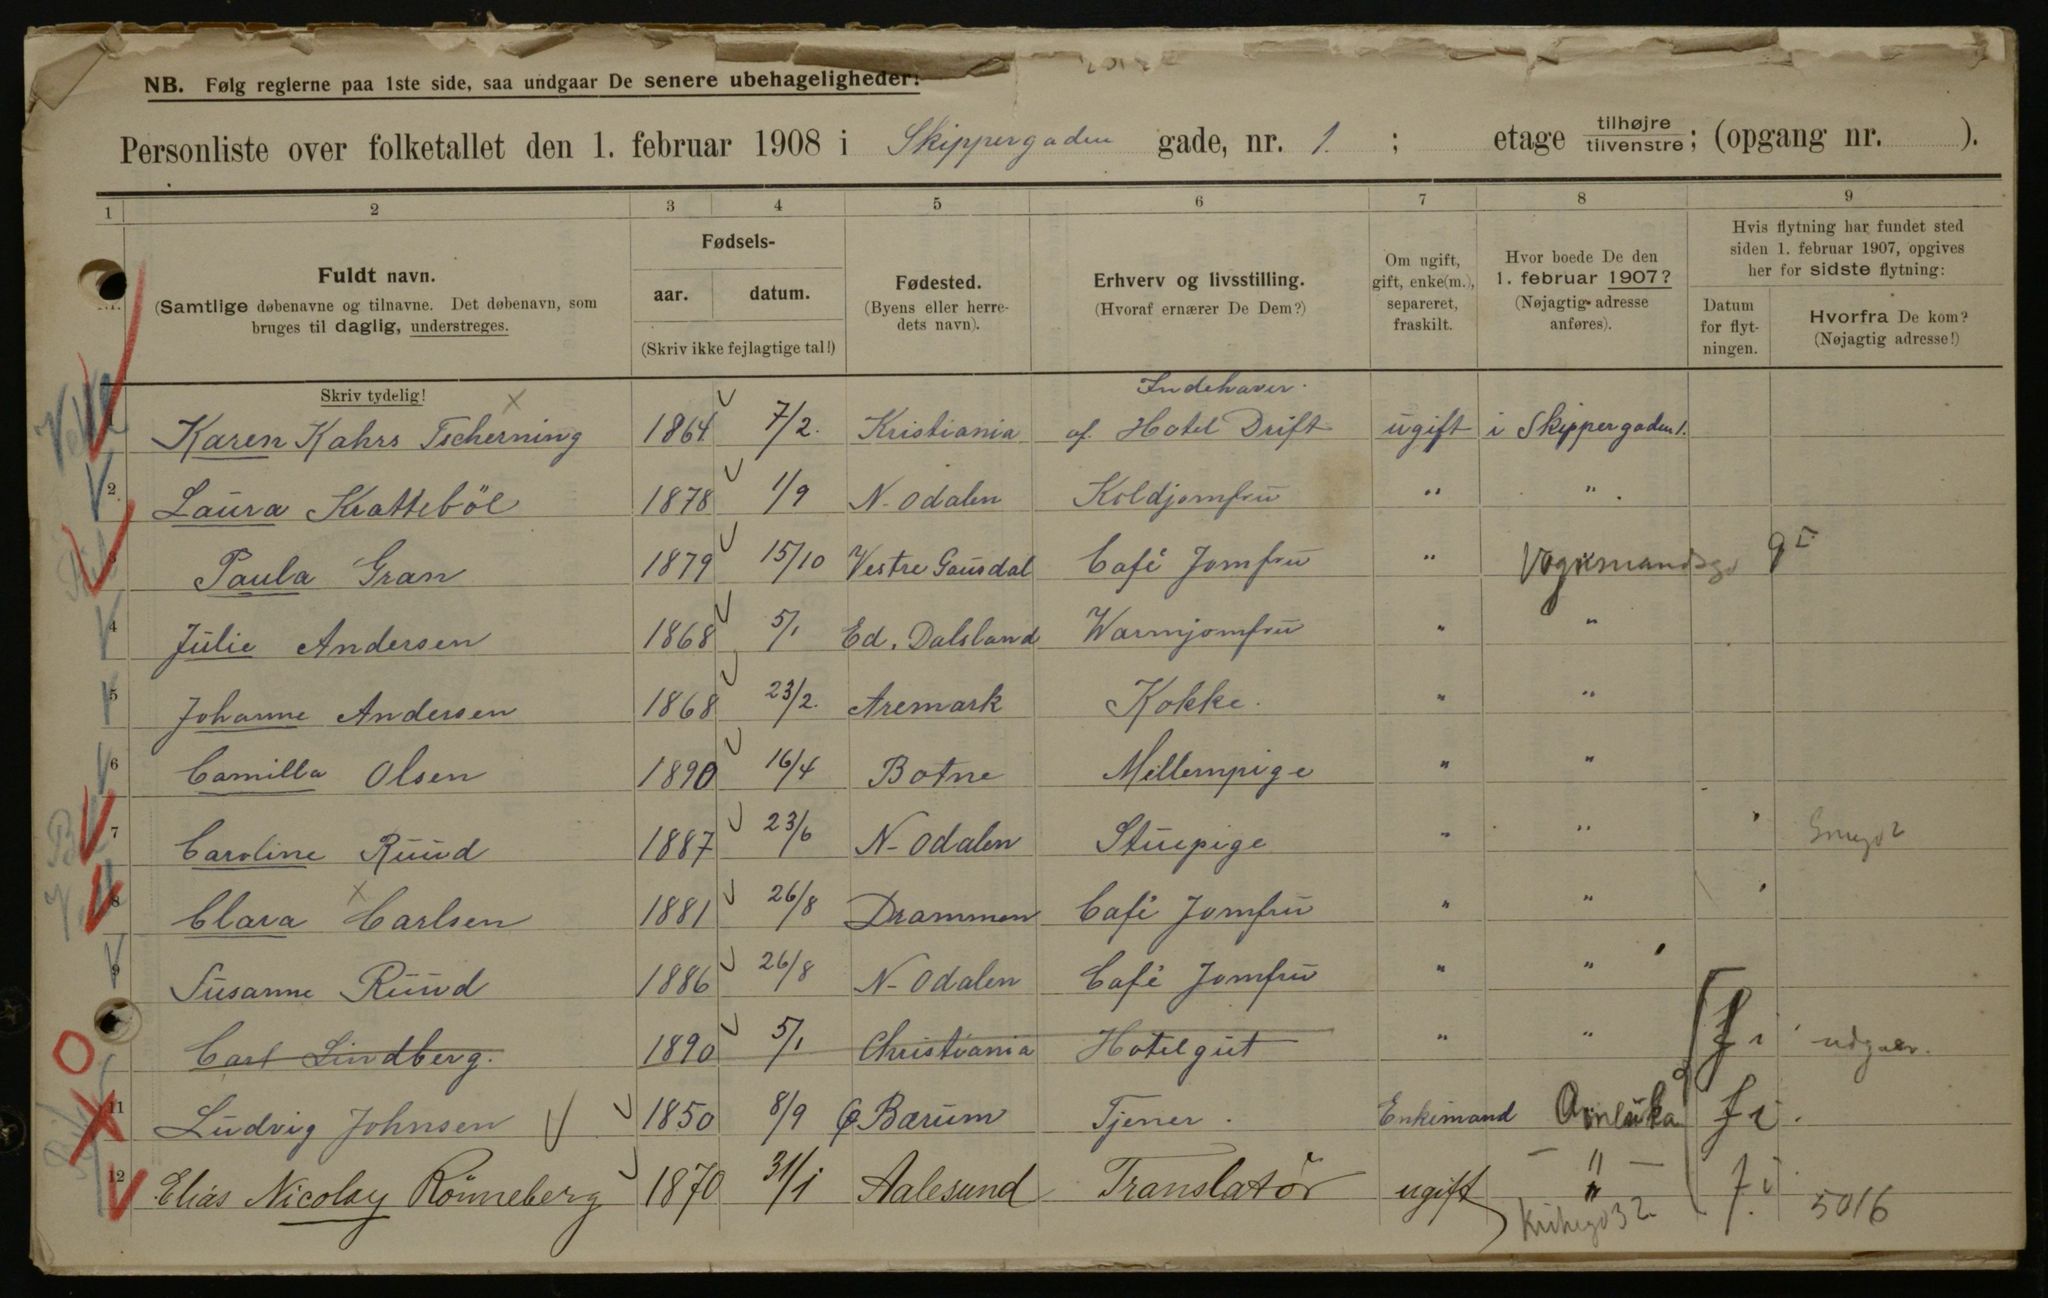 NB. Følg reglerne paa 1ste side, saa undgaar De senere ubehageligheder!
Personliste over folketallet den 1. februar 1908 i Skippergaden gade, nr. 1. ; etage tilhøjre tilvenstre; (opgang nr. ).
1 2 3 4 5 6 7 8 9
Fuldt navn.
(Samtlige døbenavne og tilnavne. Det døbenavn, som
bruges til daglig, understreges.
Skriv tydelig!
Fødsels-
aar. datum.
(Skriv ikke fejlagtige tal!)
Fødested.
(Byens eller herre-
dets navn).
Erhverv og livsstilling.
(Hvoraf ernærer De Dem?)
Om ugift,
gift, enke(m.),
separeret,
fraskilt.
Hvor boede De den
1. februar 1907?
(Nøjagtig adresse
anføres).
Hvis flytning har fundet sted
siden 1. februar 1907, opgives
her for sidste flytning:
Datum
for flyt-
ningen.
Hvorfra De kom?
(Nøjagtig adresse!)
Indehaver.
Karen Kahrs Tscherning 1864 7/2. Kristiania af. Hotel Drift ugift i Skippergaden 1.
2 Laura Kratteböl 1878 1/9 N-Odalen Koldjomfru " "
3 Paula Gran 1879 15/10 Vestre Gausdal Café Jomfru "
4 Julie Andersen 1868 5/1 Ed. Dalsland Warmjomfru " "
5 Johanne Andersen 1868 23/2. Aremark Kokke. " "
6 Camilla Olsen 1890 16/4 Botne Mellempige " "
7 Caroline Ruud 1887 23/6 N-Odalen Stuepige " "
8 Clara Carlsen 1881 26/8 Drammen Café Jomfru " "
9 Susanne Ruud 1886 26/8 N-Odalen Café Jomfru " "
Carl Lindberg. 1890 5/1 Christiania Hotelgut " "
11 Ludvig Johnsen 1850 8/9 Bærum Tjener. Enkemand Amerika
12 Elias Nicolay Rönneberg 1870 31/1 Aalesund Translatör ugift – " –
5016